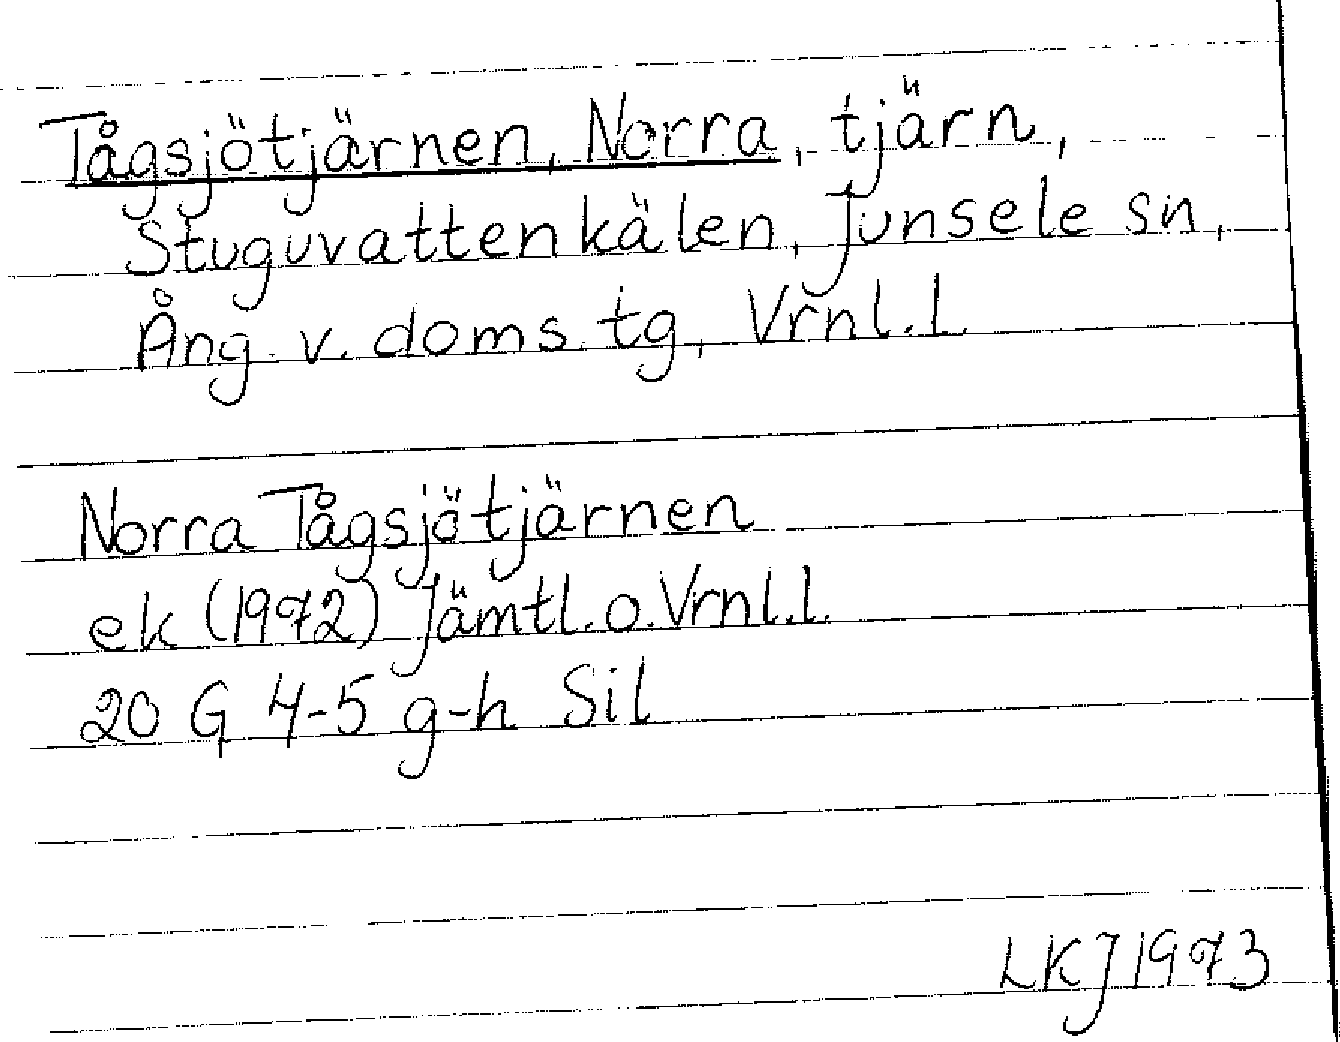 Tågsjötjärnen, Norra, tjärn,
Stuguvattenkälen, Junsele sn,
Ång. v. doms. tg, Vrnl. l
Norra Tågsjötjärnen
ek (1972) Jämtl. o. Vrnl. l.
20 G 4-5 g-h Sil
LKJ 1973